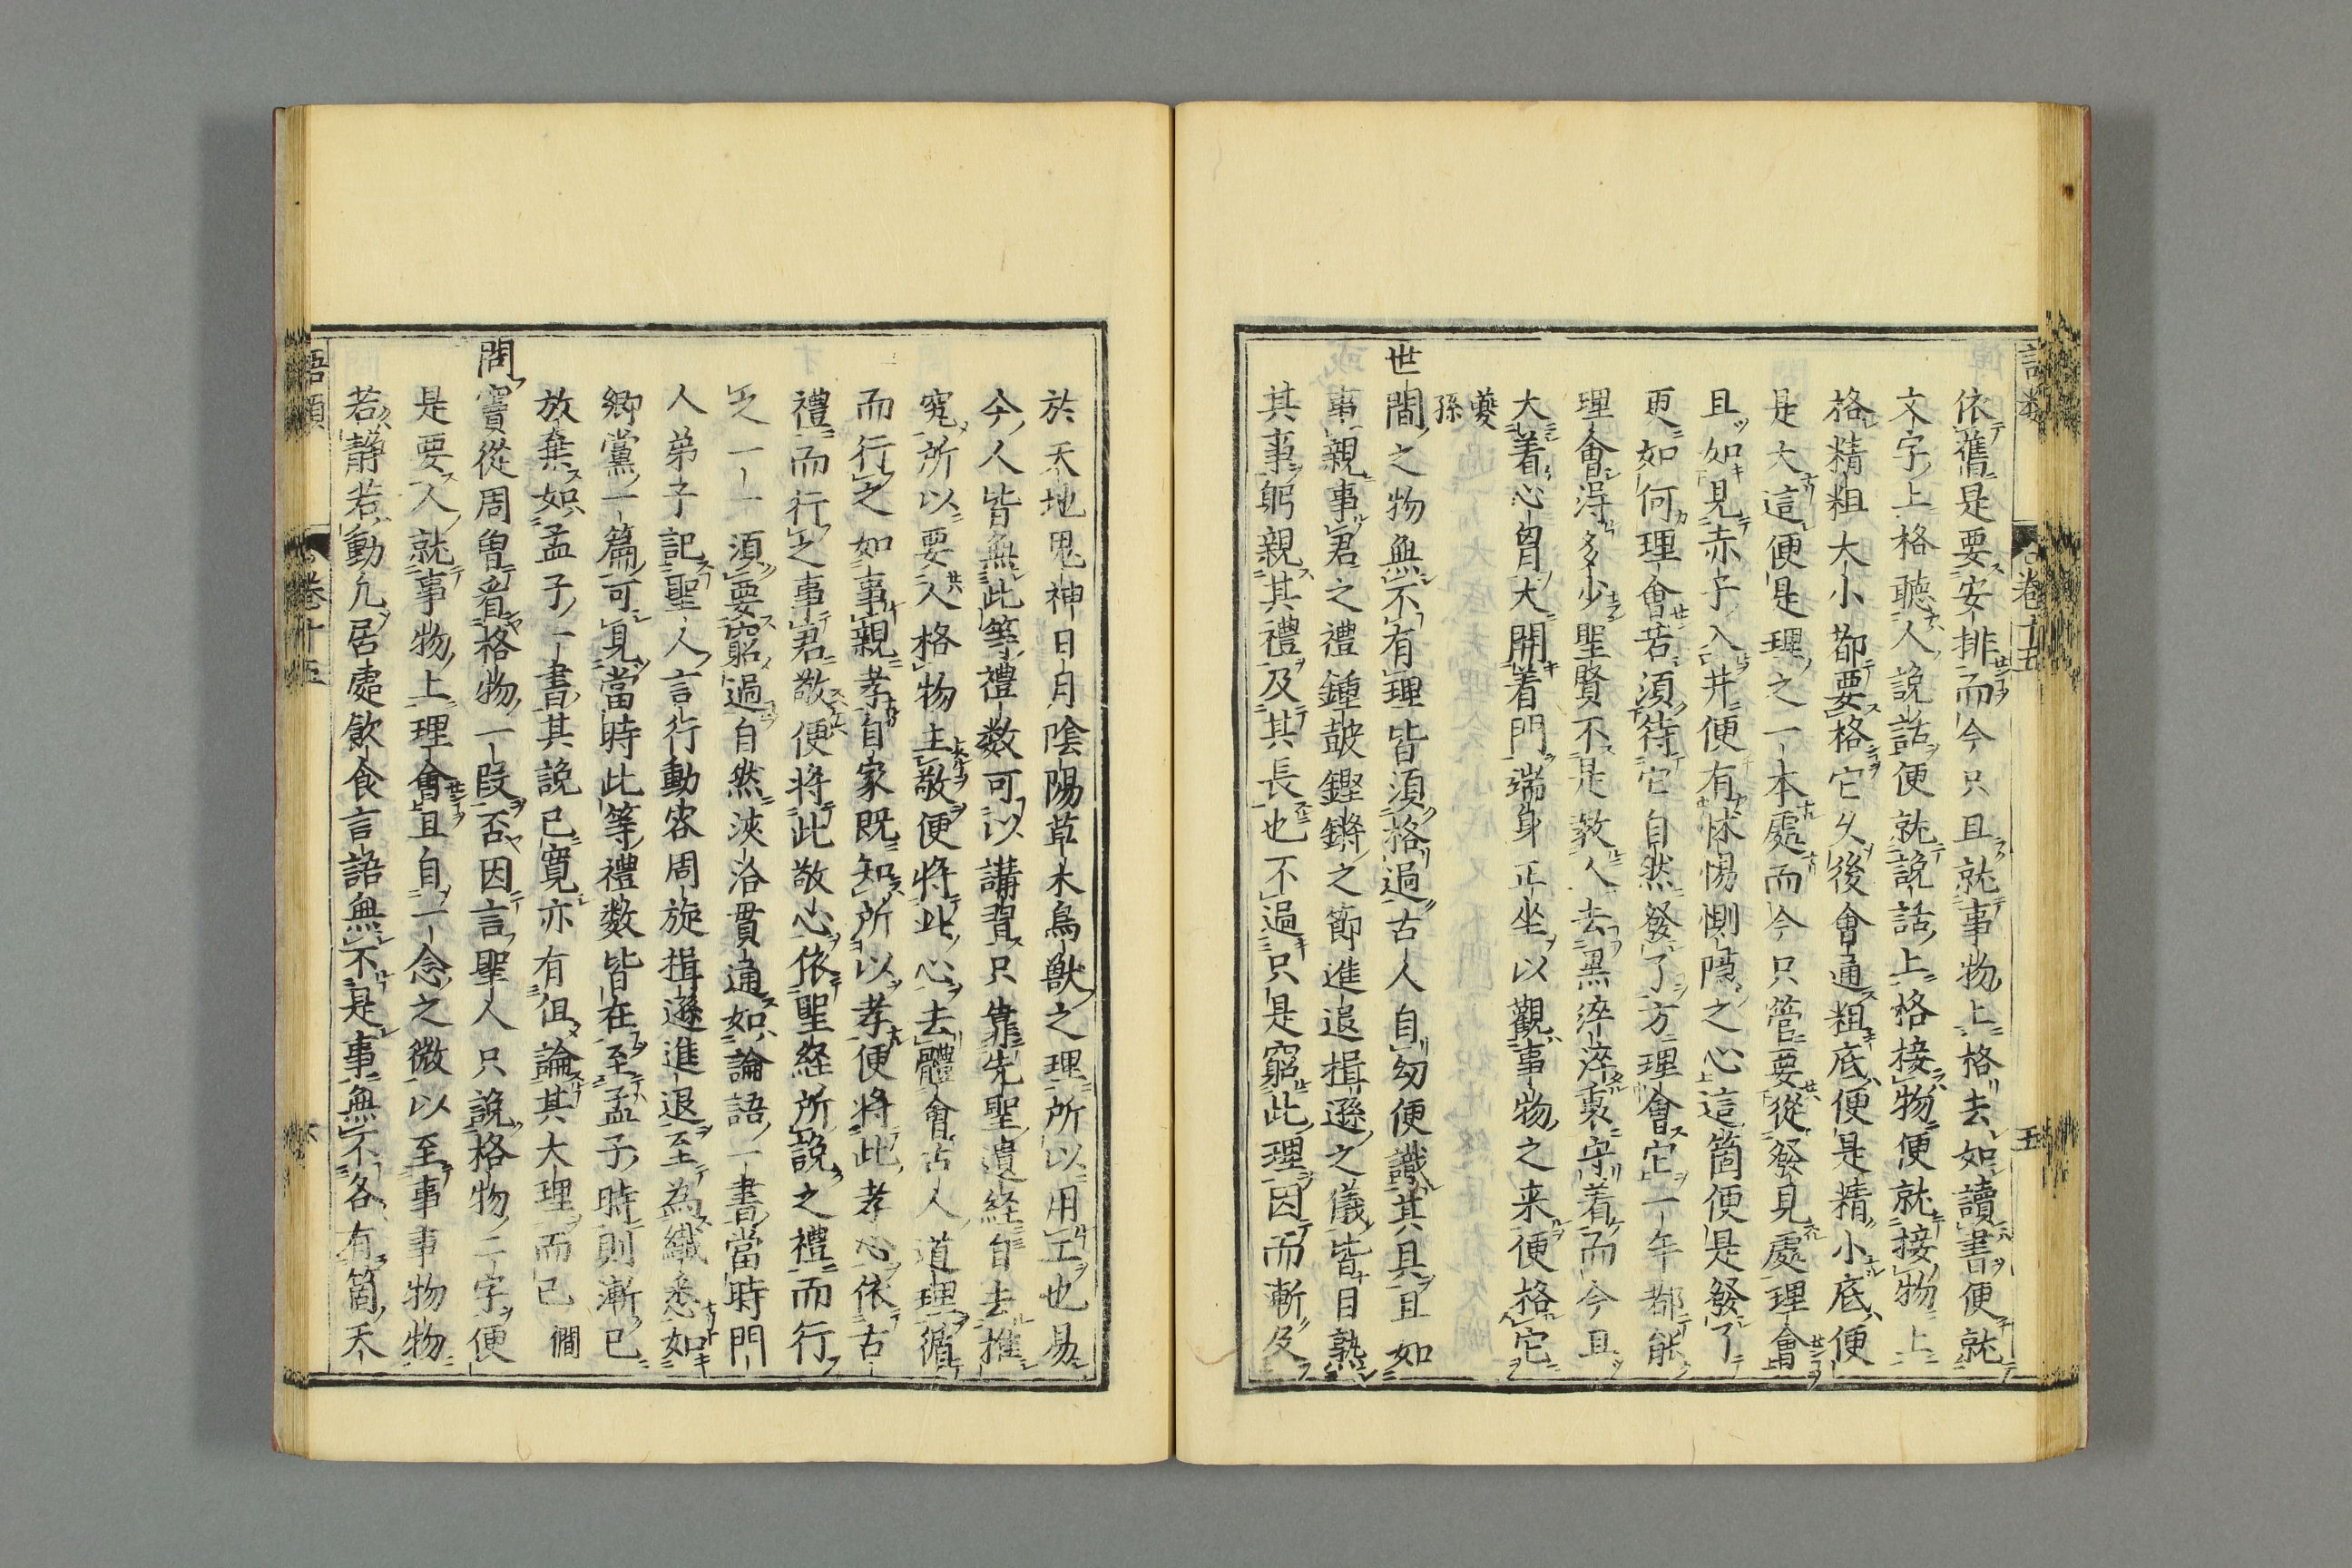 依舊是要安排而今只且就事物上格去如讀書便就
文字上格聽人說話便就說話上格接物便就接物上
格精粗大小都要格它久後會通粗底便是精小底便
是大這便是理之一本處而今只管要從發見處理會
且如見赤子入井便有怵惕惻隱之心這箇便是發了
更如何理會若須待它自然發了方理會它一年都能
理會得多少聖賢不是教人去黑淬淬裏守着而今且
大着心胷大開着門端身正坐以觀事物之来便格它
夔孫
世間之物無不有理皆須格過古人自幼便識其具且如
事親事君之禮鍾皷鏗鏘之節進退揖遜之儀皆目熟
其事躬親其禮及其長也不過只是窮此理因而漸及
於天地鬼神日月陰陽草木鳥獸之理所以用工也易
今人皆無此等禮数可以講習只靠先聖遺経自去推
究所以要人格物主敬便將此心去體會古人道理循
而行之如事親孝自家既知所以孝便将此孝心依古
禮而行之事君敬便将此敬心依聖経所說之禮而行
之一一須要窮過自然浹洽貫通如論語一書當時門
人弟子記聖人言行動容周旋揖遜進退至為纖悉如
鄉黨一篇可見當時此等禮数皆在至孟子時則漸已
放棄如孟子一書其說已寛亦有但論其大理而已 僩
問竇從周曽看格物一段否因言聖人只說格物二字便
是要人就事物上理會且自一念之微以至事事物物
若靜若動凢居處飲食言語無不是事無不各有箇天
語類 卷十五 五